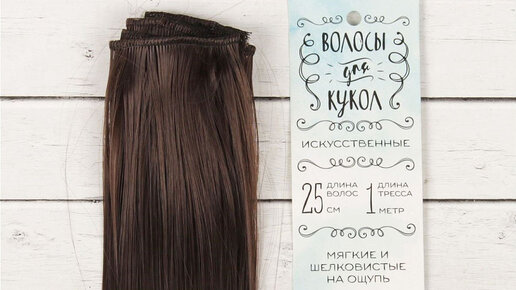 ВОЛОСЫ
для
КУКОЛ
ИСКУССТВЕННЫЕ
25 ДЛИНА ВОЛОС СМ 1 ДЛИНА ТРЕССА МЕТР
МЯГКИЕ И
ШЕЛКОВИСТЫЕ
НА ОЩУПЬ